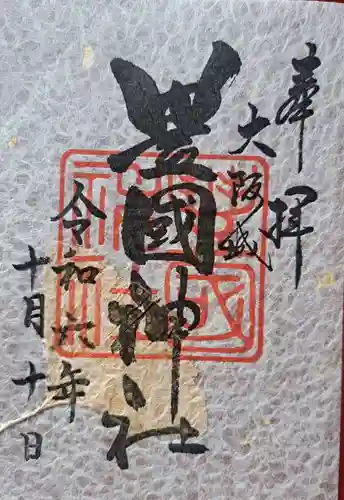 奉拝
大阪城
豊國神社
令和六年
十月十日